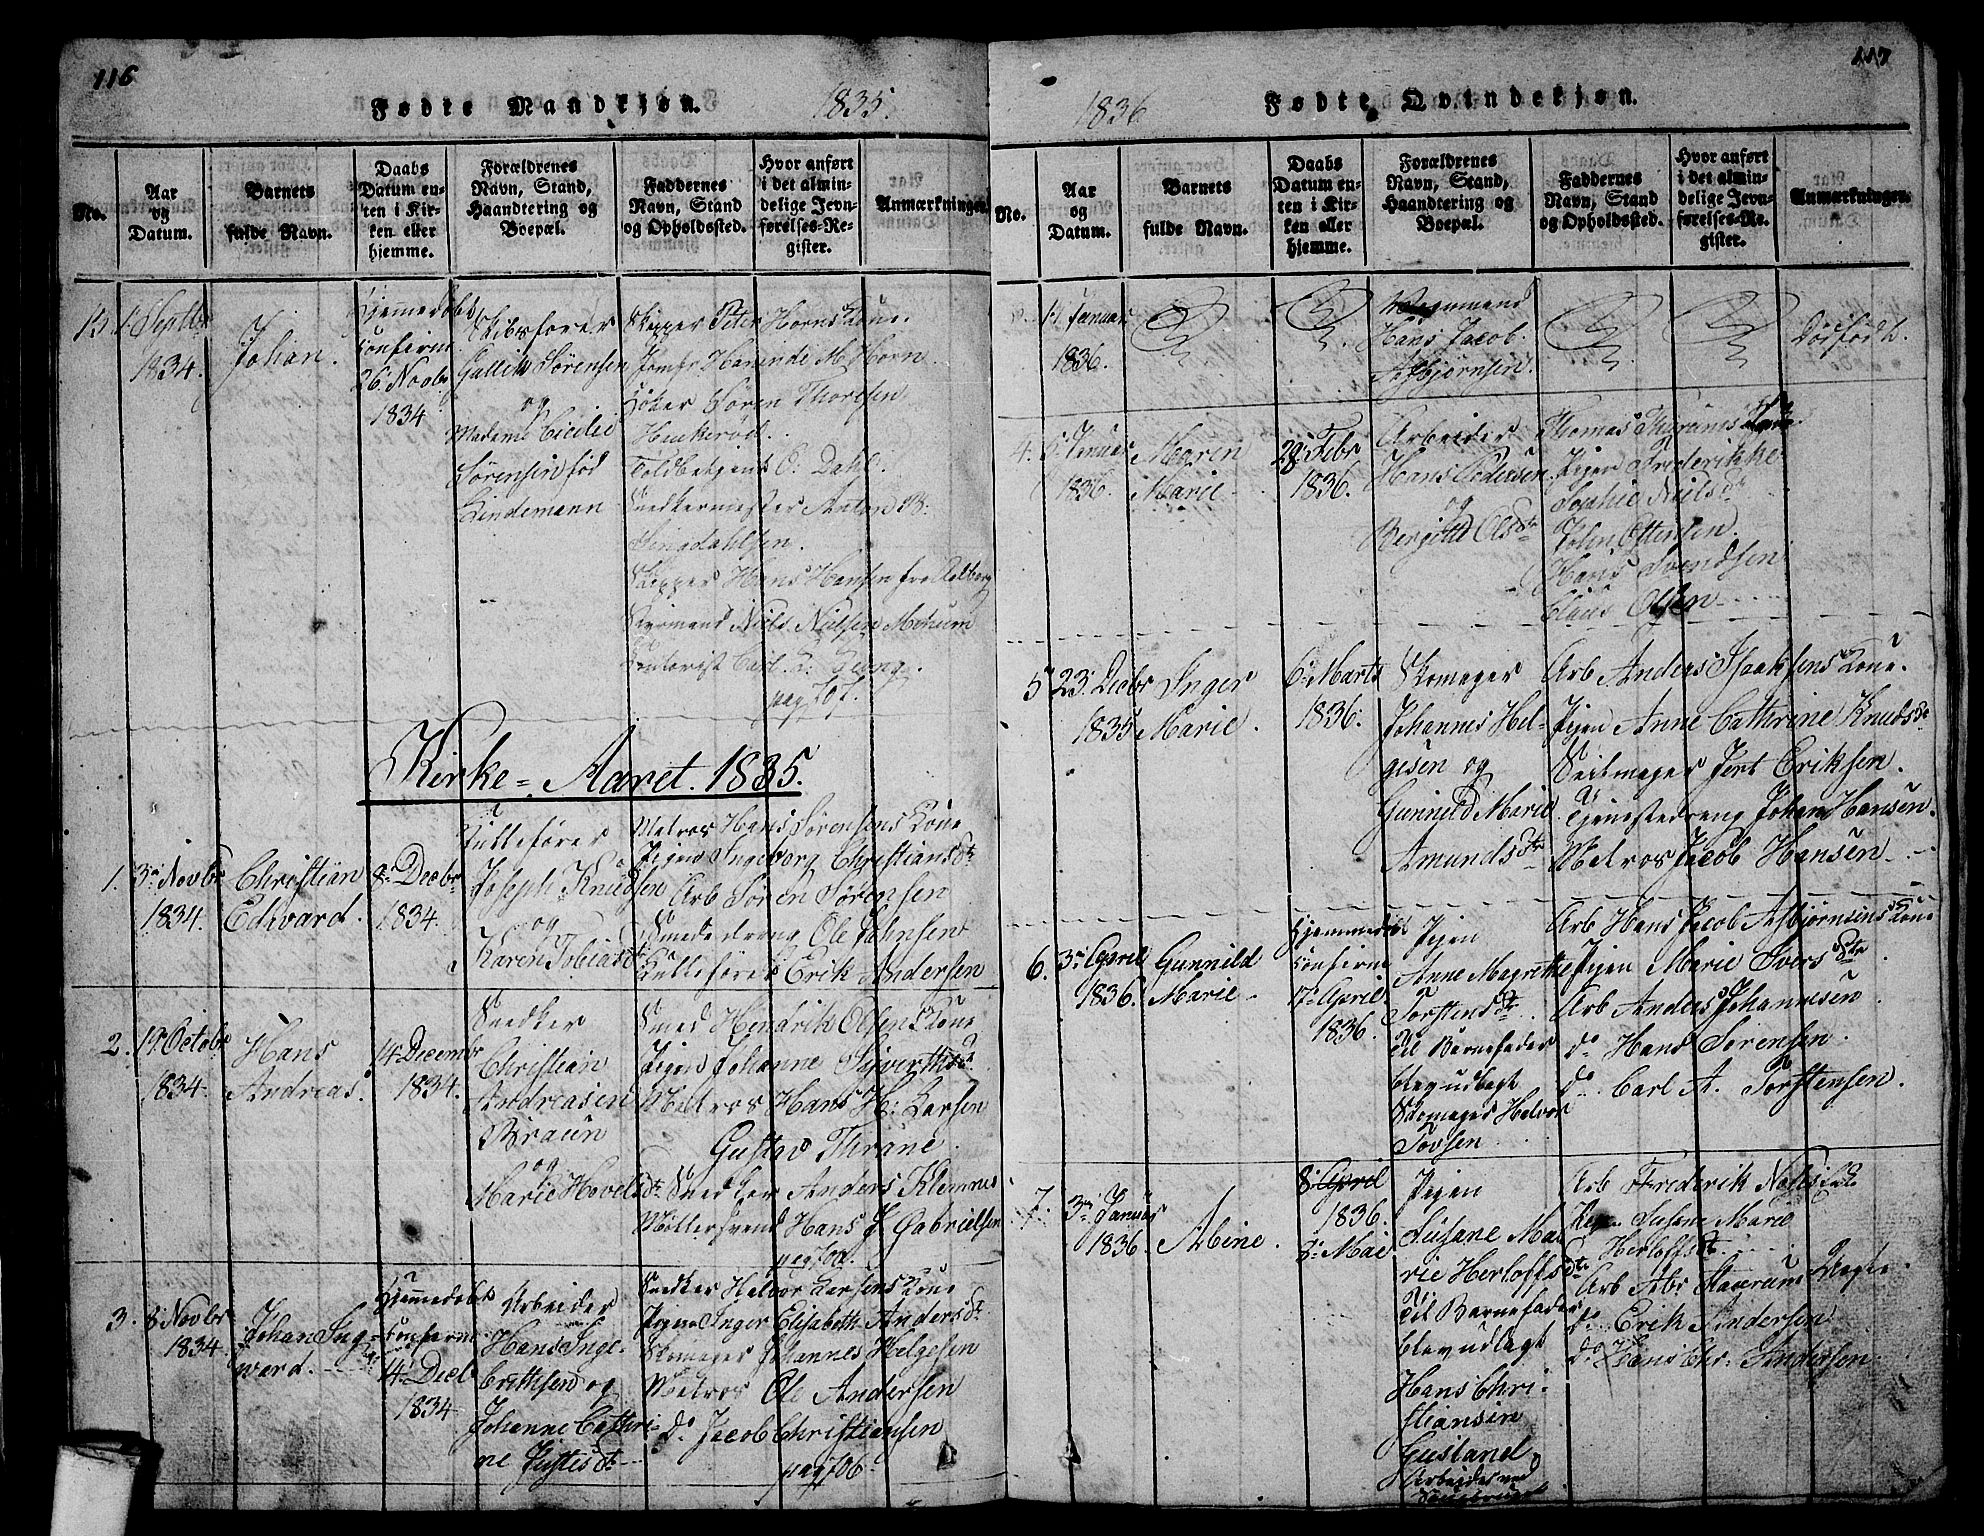 116
Fødte Mandkjøn.
1835.
No.
Aar og Datum.
Barnets fulde Navn.
Daabs Datum enten i Kirken eller hjemme.
Forældrenes Navn, Stand, Haandtering og Boepæl.
Faddernes Navn, Stand og Opholdssted.
Hvor anført i det almindelige Jevnførelses-Register.
Anmærkninger.
1 Septbr
1834.
Johan.
Hjemmedøbt
Confirm
26 Novbr
1834
Skibsfører
Gullik Sørensen
og
Madame Cicilie
Sørensen fød
Lindemann
Skipper Peter Horns Kone.
Jomfr Hansine M Horn
Søren Thorsen
Toldbetjent O: Dahl.
Snedkermester Anton B:
Skipper Hans Hansen
Styrmand Niels Nielsen
Contorist Carl
pag 707.
Kirke-Aaret. 1835.
1.
3 Novbr
1834.
Christian
Edvard.
8 Decbr
1834.
Joseph Knudsen
og
Karen Tobiasdr
Matros Hans Sørensens Kone
Pigen Ingeborg Christiansdr
Arb Søren Sørensen
Smededreng Ole Johnsen
Erik Andersen
2.
19 Octobr
1834.
Hans
Andreas.
14 Decembr
1834.
Snedker
Christian
Andreasen
Braun
og
Marie Hovelsdr
Smed Hendrik Olsens Kone
Pigen Johanne Sivertsdr
Matros Hans H: Larsen
Gustav Thrane.
Snedker Anders Klemmes
Møllersvend Hans J Gabrielsen
pag 706.
3.
8 Novbr
1834.
Johan Ing-
vard.
Hjemmedøbt
Confirm
14 Decb
1834
Arbeider
Hans Inge-
brethsen og
Johanne Cathri-
ne Justesdr
Snedker Halvor Larsens Kone
Pigen Inger Elisabeth Andersdr
Skomager Johannes Helgesen
Matros Ole Andersen
do Jacob Christiansen
pag 706.
117
1836
Fødte Qvindekjøn.
No.
Aar og Datum.
Barnets fulde Navn.
Daabs Datum enten i Kirken eller hjemme.
Forældrenes Navn, Stand, Haandtering og Boepæl.
Faddernes Navn, Stand og Opholdssted.
Hvor anført i det almindelige Jevnførelses-Register.
Anmærkninger.
11 Januar
1836.
Hans Jacob
Asbjørnsen.
Dødfødt.
4.
6 Januar
1836.
Maren
Marie
28 Febr
1836.
Arbeider
Hans Pedersen
og
Bergitte Olsdr
Thomas Thranes Kone
Pigen Frederikke
Sophie Nielsdr
John Ottersen.
Hans Svendsen
Claus Olsen
5
23 Decbr
1835
Inger
Marie.
6 Marts
1836.
Skomager
Johannes Hel-
gesen og
Gunnild Marie
Amundsdr
Arb Anders Isaaksens Kone.
Pigen Anne Cathrine Knudsdr
Seilmager Jert Eriksen.
Tjenestedreng Johan Hansen.
Matros Jacob Hansen
6.
3 April
1836.
Gunnild
Marie
Hjemmedøbt
Confirm
17 April
1836.
Pigen
Anne Magrethe
Torstensdr.
Til Barnefader
blev udlagt
Skomager Halvor
Tovsen
Arb Hans Jacob Asbjørnsens Kone
Pigen Marie Ivers Dtr
Arb Anders Johannesen
do Hans Sørensen.
do Carl A. Torstensen.
7.
3 Januar
1836.
Abine.
8 April
1836.
8 Mai
Pigen
Susane Ma-
rie Herloffsdtr
Til Barnefader
blev udlagt
Hans Chri-
stiansen
Arb Frederik
Susane Marie
Herloffsdr
Arb Abr Staurum
do Erik Andersen
do Hans Chr: Andersen
Uægte.